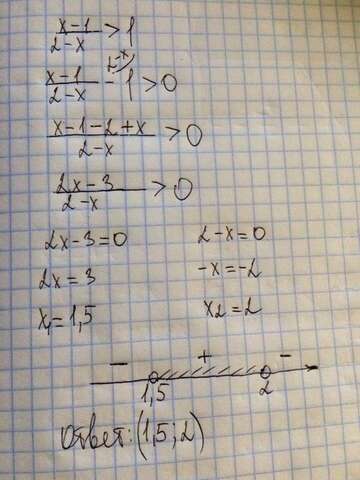 (x-1)/(2-x) > 1
(x-1)/(2-x) - 1 > 0 2-x
(x-1-2+x)/(2-x) > 0
(2x-3)/(2-x) > 0
2x-3=0 2-x=0
2x=3 -x=-2
x₁=1,5 x₂=2
- + -
1,5 2
Ответ: (1,5; 2)